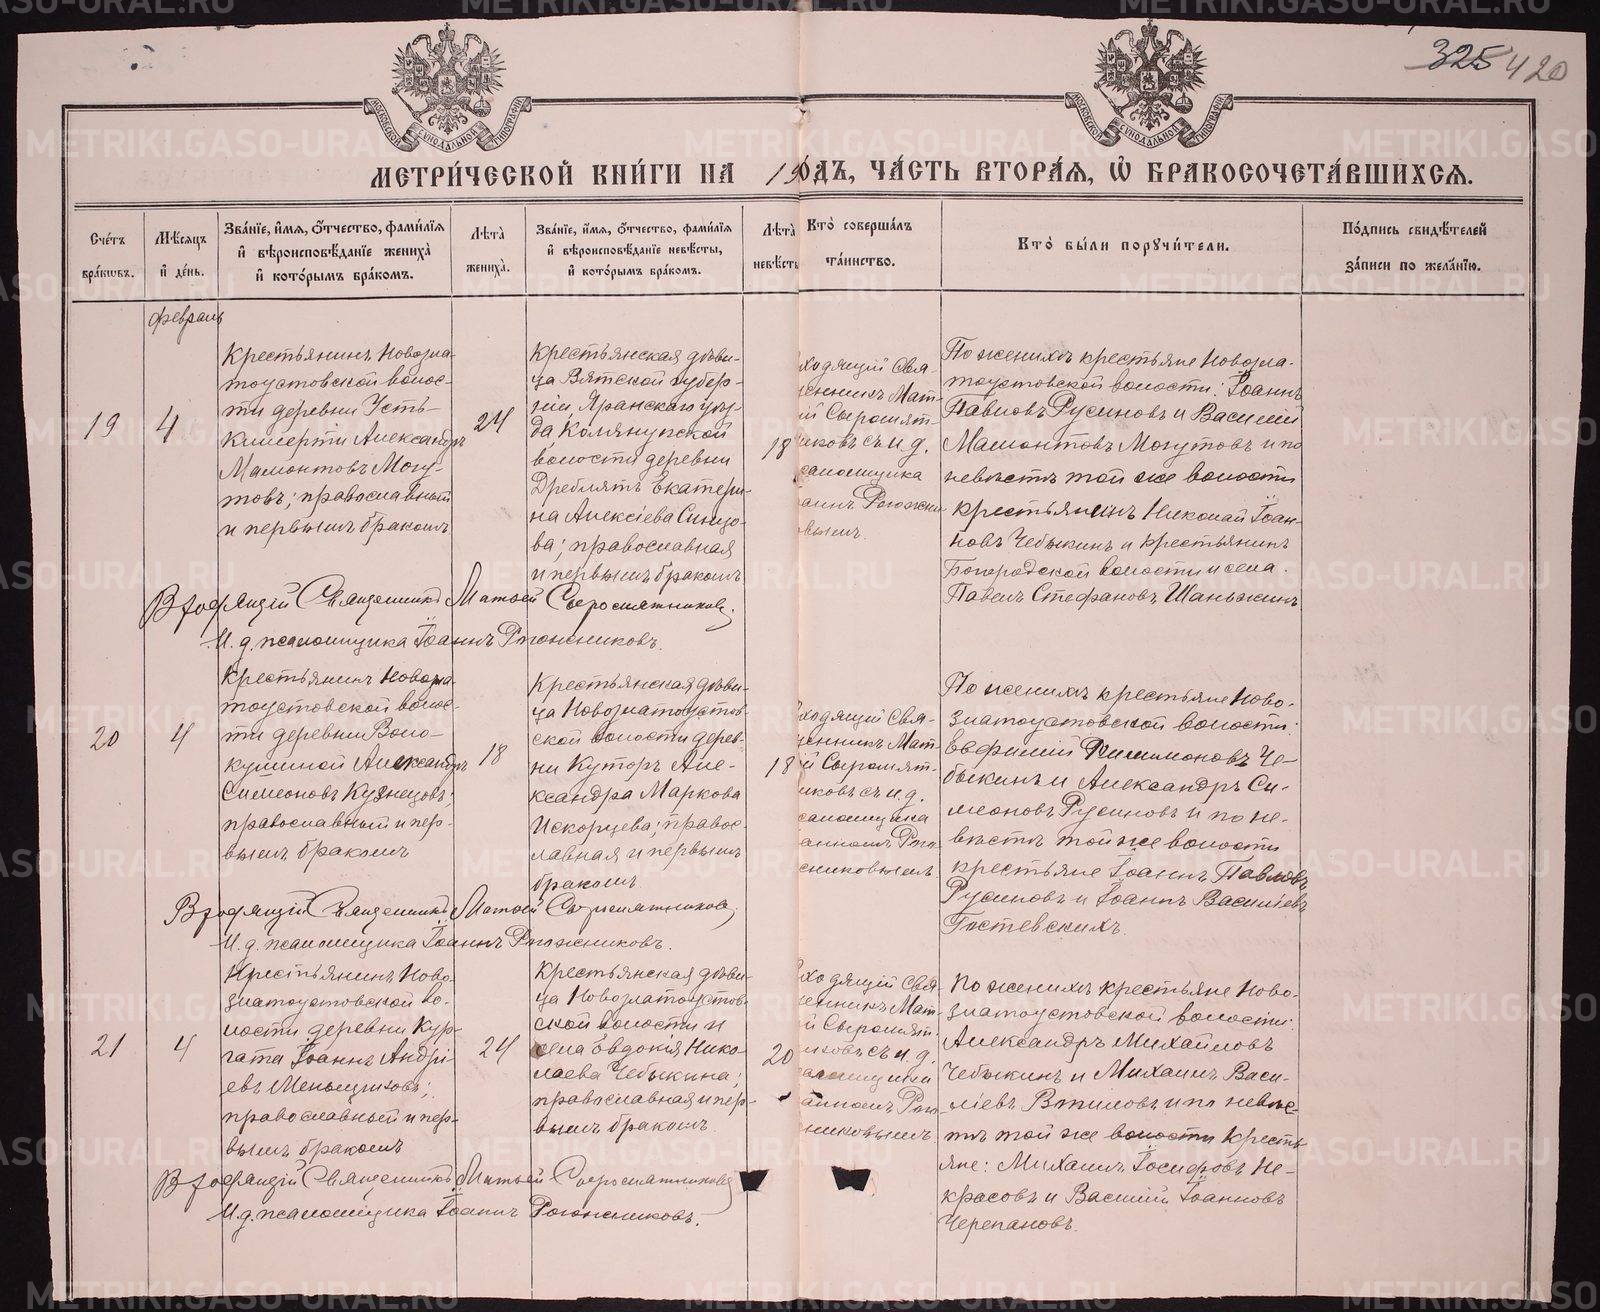 325 420
МОСКОВСКОЙ СѴНОДАЛЬНОЙ ТИПОГРАФІИ
МОСКОВСКОЙ СѴНОДАЛЬНОЙ ТИПОГРАФІИ
МЕТРИ́ЧЕСКОЙ КНИ́ГИ НА 19 ОДЪ, ЧА́СТЬ ВТОРА́Я, Ѡ БРАКОСОЧЕТА́ВШИХСЯ.
Сче́тъ бра́кѡвъ.
Мѣ́сяцъ и́ де́нь.
Зва́нїе, и́мя, ѻ́тчество, фами́лїя и́ вѣроисповѣ́данїе жениха̀ и́ кото́рымъ бра́комъ.
Лѣ́та жениха̀.
Зва́нїе, и́мя, ѻ́тчество, фами́лїя и́ вѣроисповѣ́данїе невѣ́сты, и́ кото́рымъ бра́комъ.
Лѣ́та невѣ́сты
Кто̀ соверша́лъ та́инство.
Кто̀ бы́ли порꙋчи́тели.
По́дпись свидѣ́телей за́писи по жела́нїю.
Февраль
19
4
Крестьянинъ Новозла-
тоустовской волос-
ти деревни Усть-
Кишерти Александръ
Мамонтовъ Могу-
товъ; православный
и первымъ бракомъ
24
Крестьянская дѣви-
ца Вятской губер-
ніи, Яранскаго уѣз-
да
волости деревни
Екатери-
на Алексіева
ва; православная
и первымъ бракомъ
18
ходящій Свя-
щенникъ Мат-
ѳій Сыромят-
никовъ съ и. д.
псаломщика
По женихѣ крестьяне Новозла-
тоустовской волости: Іоаннъ
Павловъ Русиновъ и Василій
Мамонтовъ Могутовъ и по
невѣстѣ той же волости
крестьянинъ Николай Іоан-
новъ Чебыкинъ и крестьянинъ
Богородской волости и села
Павелъ Стефановъ Шаньжинъ
Входящій Священникъ Матѳей Сыромятниковъ.
И. д. псаломщика Іоаннъ Рогожниковъ.
20
4
Крестьянинъ Новозла-
тоустовской волос-
ти деревни Воло-
кушиной Александръ
Симеоновъ Кузнецовъ;
православный и пер-
вымъ бракомъ
18
Крестьянская дѣви-
ца Новозлатоустов-
ской волости дерев-
ни Куторъ Але-
ксандра Маркова
Искорцева; правос-
лавная и первымъ
бракомъ
18
ходящій Свя-
щенникъ Мат-
ѳій Сыромят-
никовъ съ и. д.
псаломщика
Іоанномъ Рого-
жниковымъ.
По женихѣ крестьяне Ново-
златоустовской волости:
Евфимій Филимоновъ Че-
быкинъ и Александръ Си-
меоновъ Русиновъ и по не-
вѣстѣ той же волости
крестьяне Іоаннъ Павловъ
Русиновъ и Іоаннъ Василіевъ
Гостевскихъ.
Входящій Священникъ Матѳей Сыромятниковъ.
И. д. псаломщика Іоаннъ Рогожниковъ.
21
4
Крестьянинъ Ново-
златоустовской во-
лости деревни Кур-
гата Іоаннъ Андрі-
евъ Меньщиковъ;
православный и пер-
вымъ бракомъ
24
Крестьянская дѣви-
ца Новозлатоустов-
ской волости и
села Евдокія Нико-
лаева Чебыкина;
православная и пер-
вымъ бракомъ
20
ходящій Свя-
щенникъ Мат-
ѳій Сыромят-
никовъ съ и. д.
псаломщика
Іоанномъ Рого-
жниковымъ.
По женихѣ крестьяне Ново-
златоустовской волости:
Александръ Михайловъ
Чебыкинъ и Михаилъ Васи-
ліевъ Вопиловъ и по невѣс-
тѣ той же волости кресть-
яне: Михаилъ Іосифовъ Не-
красовъ и Василій Іоанновъ
Черепановъ.
Входящій Священникъ Матѳей Сыромятниковъ
И. д. псаломщика Іоаннъ Рогожниковъ.